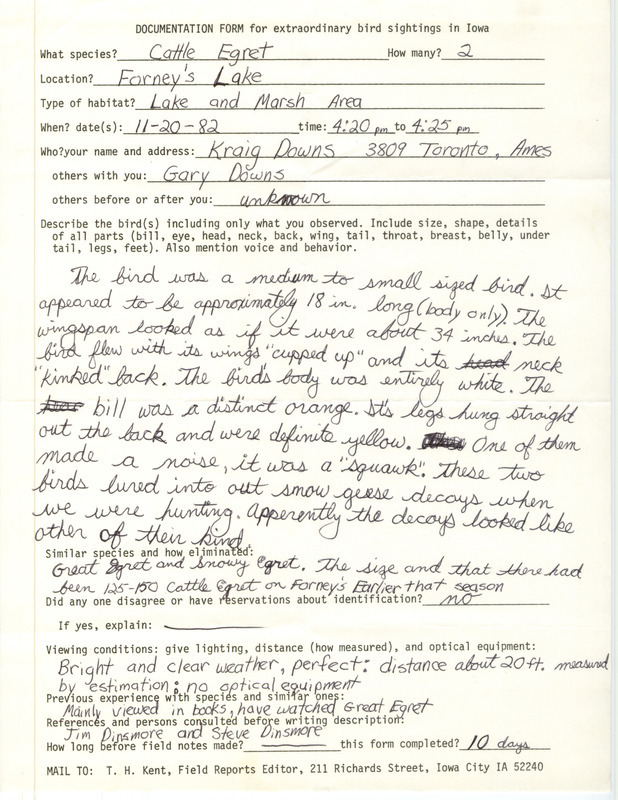 DOCUMENTATION FORM for extraordinary bird sightings in Iowa
What species? Cattle Egret How many? 2
Location? Forney's Lake
Type of habitat? Lake and Marsh Area
When? date(s): 11-20-82 time: 4:20 pm to 4:25 pm
Who?your name and address: Kraig Downs 3809 Toronto, Ames
others with you: Gary Downs
others before or after you: unknown
Describe the bird(s) including only what you observed. Include size, shape, details
of all parts (bill, eye, head, neck, back, wing, tail, throat, breast, belly, under
tail, legs, feet). Also mention voice and behavior.
The bird was a medium to small sized bird. It
appeared to be approximately 18 in. long (body only). The
wingspan looked as if it were about 34 inches. The
bird flew with its wings "cupped up" and its head neck
"kinked" back. The bird's body was entirely white. The
bill was a distinct orange. It's legs hung straight
out the back and were definite yellow. One of them
made a noise, it was a "squawk". These two
birds lured into out snow geese decoys when
we were hunting. Apperently the decoys looked like
other of their kind.
Similar species and how eliminated:
Great Egret and Snowy Egret. The size and that there had
been 125-150 Cattle Egret on Forney's Earlier that season
Did any one disagree or have reservations about identification? no
If yes, explain:
Viewing conditions: give lighting, distance (how measured), and optical equipment:
Bright and clear weather, perfect: distance about 20 ft. measured
by estimation; no optical equipment
Previous experience with species and similar ones:
Mainly viewed in books, have watched Great Egret
References and persons consulted before writing description:
Jim Dinsmore and Steve Dinsmore
How long before field notes made? this form completed? 10 days
MAIL TO: T. H. Kent, Field Reports Editor, 211 Richards Street, Iowa City IA 52240